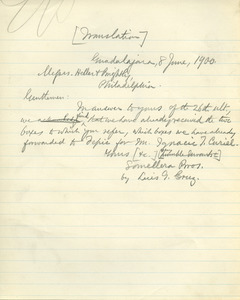 [Translation]
Guadalajara, 8 June, 1900.
Messrs. Hilbert
Philadelphia.
Gentlemen:
In answer to yours of the 26th ult.,
we, that we have already received the two
boxes to which you refer, which boxes we have already
forwarded to Tepic for Mr. Ignacio T. Curiel.
Yours [etc.]
Somellera Bros.
by Luis G. Cruz.